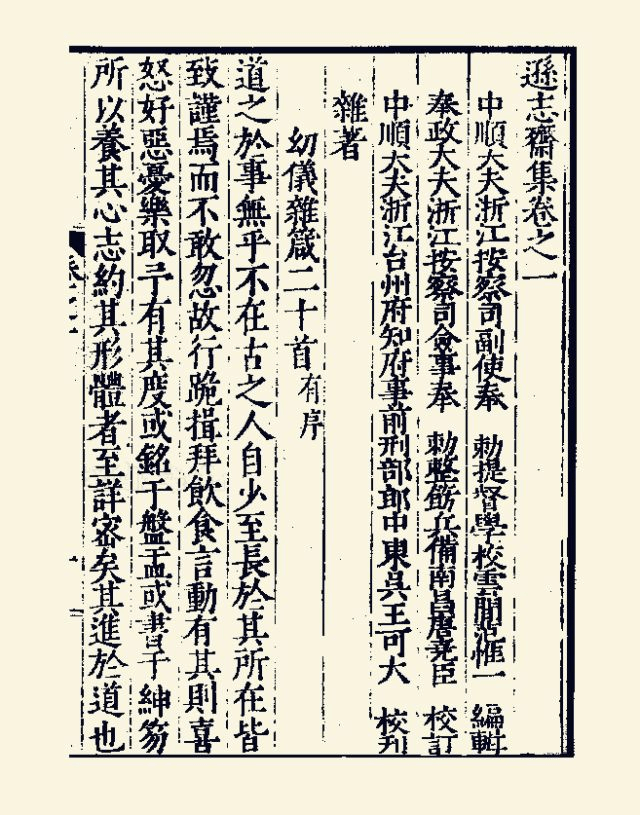 遜志齋集卷之一
中順大夫浙江按察司副使奉　勅提督學校雲間范惟一　編輯
奉政大夫浙江按察司僉事奉　勅整飭兵備南昌唐堯臣　校訂
中順大夫浙江台州府知府事前刑部郎中東吳王可大　校刊
雜著
幼儀雜箴二十首有序
道之於事無乎不在古之人自少至長於其所在皆
致謹焉而不敢忽故行跪揖拜飲食言動有其則喜
怒好惡憂樂取予有其度或銘于盤盂或書于紳笏
所以養其心志約其形體者至詳密矣其進於道也